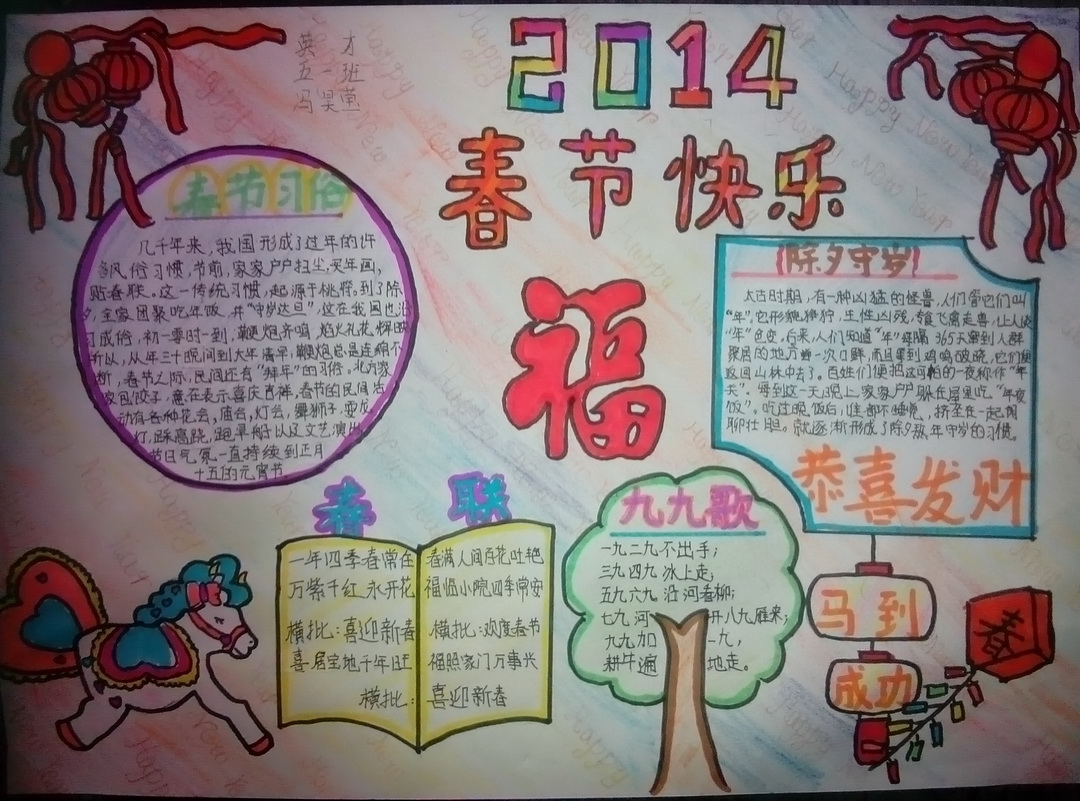 英才
五一班
2014
春节快乐
福
春节习俗
几千年来，我国形成了过年的许
多风俗习惯，节前，家家户户扫尘，买年画，
贴春联。这一传统习惯，起源于桃符。到了除
夕，全家团聚吃年饭，并“守岁达旦”，这在我国也沿
习成俗，初一零时一到，鞭炮齐鸣，焰火礼花，辉映
所以，从年三十晚间到大年清早，鞭炮总是连绵不
断，春节之际，民间还有“拜年”的习俗。北方家
家包饺子，意在表示喜庆吉祥，春节的民间活
动有各种花会，庙会，灯会，舞狮子，耍龙
灯，踩高跷，跑旱船以及文艺演出
节日气氛一直持续到正月
十五的元宵节
除夕守岁
太古时期，有一种凶猛的怪兽，人们管它们叫
“年”。它形貌狰狞，生性凶残，专食飞禽走兽，让人谈
“年”色变。后来，人们知道“年”每隔365天窜到人群
聚居的地方尝一次口鲜，而且等到鸡鸣破晓，它们便
返回山林中去了。百姓们便把这可怕的一夜称作“年
关”。每到这一天晚上，家家户户躲在屋里吃“年夜
饭”。吃过晚饭后，谁都不睡觉，挤坐在一起闲
聊壮胆。就逐渐形成了除夕熬年守岁的习惯。
恭喜发财
春联
一年四季春常在
万紫千红永开花
横批：喜迎新春
喜居宝地千年旺
春满人间百花吐艳
福临小院四季常安
横批：欢度春节
福照家门万事兴
横批：喜迎新春
九九歌
一九二九不出手；
三九四九冰上走；
五九六九沿河看柳；
七九河开八九雁来；
九九加一九，
耕牛遍地走。
马到
成功
春
Happy New Year